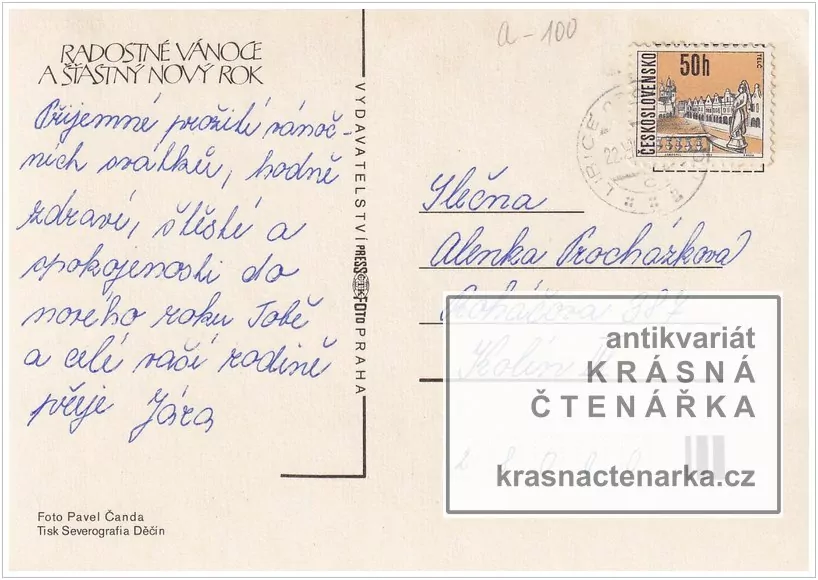 a-100
RADOSTNÉ VÁNOCE
A ŠŤASTNÝ NOVÝ ROK
Příjemné prožití vánoč-
ních svátků, hodně
zdraví, štěstí a
spokojenosti do
nového roku Tobě
a celé vaší rodině
přeje Jára
Foto Pavel Čanda
Tisk Severografia Děčín
VYDAVATELSTVÍ PRESSFOTO PRAHA
ČESKOSLOVENSKO
50h
TELČ
Slečna
Alenka Procházková
387
Kolín
antikvariát
KRÁSNÁ
ČTENÁŘKA
krasnactenarka.cz